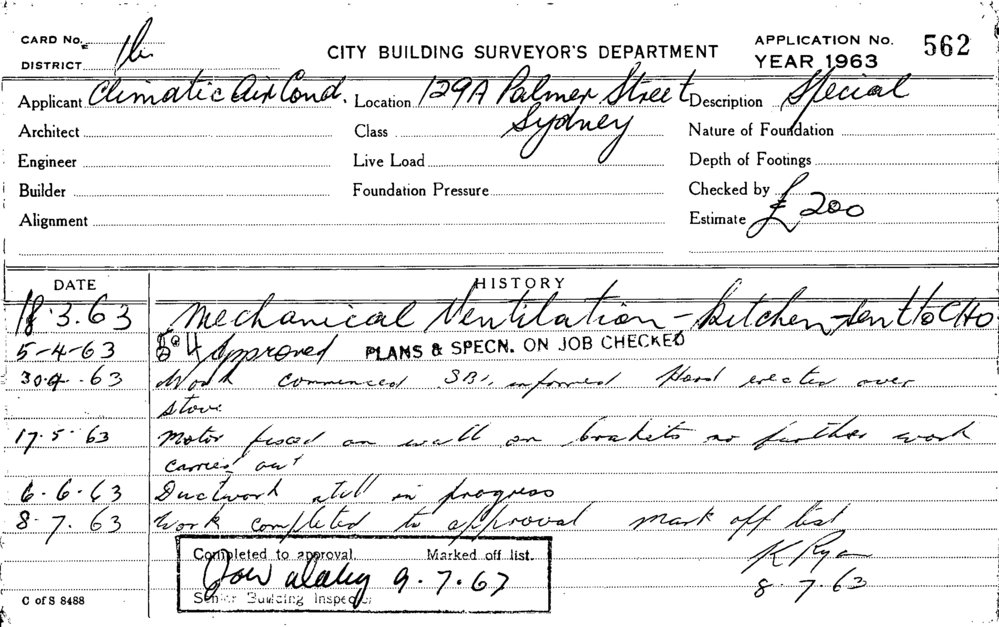 CARD No.
DISTRICT
CITY BUILDING SURVEYOR'S DEPARTMENT
APPLICATION No. 562
YEAR 1963
Applicant Climatic Air Cond. Location 129A Palmer Street Description Special
Sydney
Architect Class Nature of Foundation
Engineer Live Load Depth of Footings
Builder Foundation Pressure Checked by
Alignment Estimate £200
DATE HISTORY
18.3.63 Mechanical Ventilation - Kitchen - sent to CHO
5-4-63 Approved PLANS & SPECN. ON JOB CHECKED
30.4.63 Work commenced SBI, informed Hood erected over
stove
17.5.63 Motor fixed on wall on brakets no further work
carried out
6.6.63 Ductwork still in progress
8.7.63 Work completed to approval mark off list
K Ryan
8.7.63
Completed to approval. Marked off list.
9.7.63
Senior Building Inspector
C of S 8488